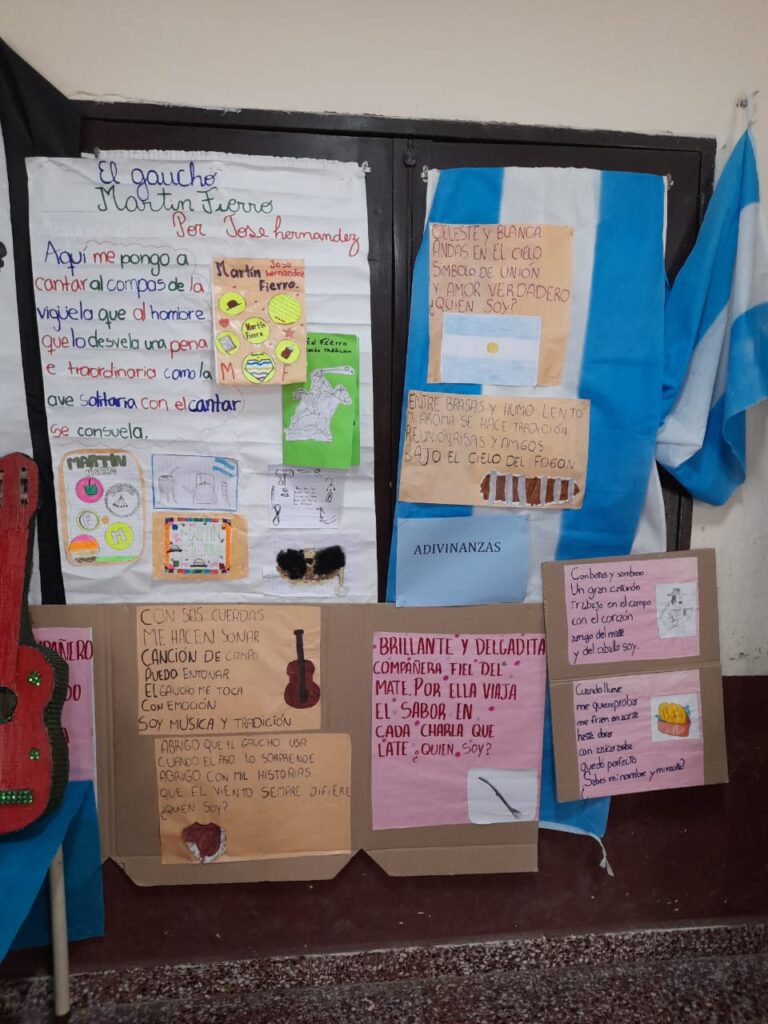 El gaucho
Martin Fierro
Por Jose hernandez
Aquí me pongo a
cantar al compas de la
vigüela que al hombre
que lo desvela una pena
e traordinaria como la
ave solitaria con el cantar
se consuela.
Martín Jose
hernandez
Fierro.
Martín
Fierro
M F
Fierro
MARTÍN
CELESTE Y BLANCA
ANDAS EN EL CIELO
SIMBOLO DE UNIÓN
Y AMOR VERDADERO
¿QUIEN SOY?
ENTRE BRASAS Y HUMO LENTO
AROMA SE HACE TRADICIÓN
REUNIÓN RISAS Y AMIGOS
BAJO EL CIELO DEL FOGON
ADIVINANZAS
CON SEIS CUERDAS
ME HACEN SONAR
CANCIÓN DE CAMPO
PUEDO ENTONAR
EL GAUCHO ME TOCA
CON EMOCIÓN
SOY MÚSICA Y TRADICIÓN
ABRIGO QUE EL GAUCHO USA
CUANDO EL FRIO LO SORPRENDE
ABRIGO CON MIL HISTORIAS
QUE EL VIENTO SIEMPRE DIFIERE
¿QUIEN SOY?
BRILLANTE Y DELGADITA
COMPAÑERA FIEL DEL
MATE. POR ELLA VIAJA
EL SABOR EN
CADA CHARLA QUE
LATE ¿QUIEN SOY?
Con botas y sombrero
Un gran cinturón
Trabajo en el campo
con el corazón
amigo del mate
y del caballo soy.
Cuando llueve
me quieren probar
me frien en aceite
hasta dorar
con azúcar
quedó perfecto
Sabes mi nombre y mi receta?